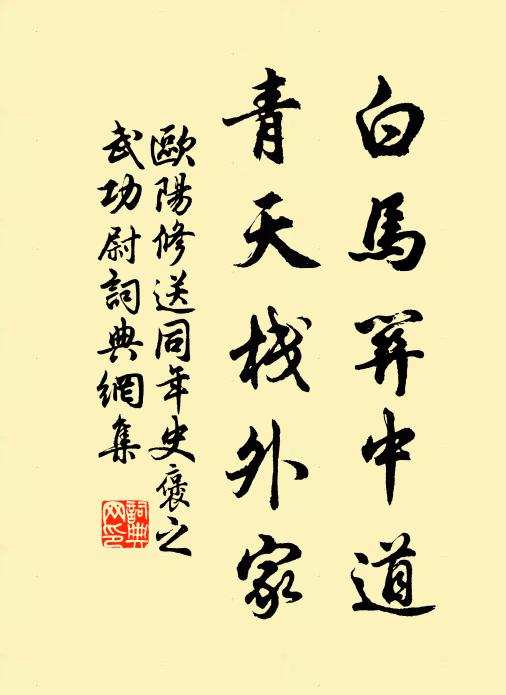 白馬關中道
青天棧外家
歐陽修送同年史褒之
武功尉詞典網集
詞典
网印